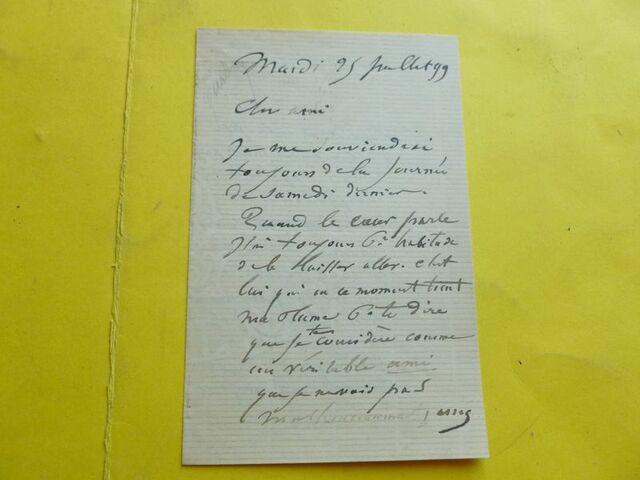 Mardi 25 Juillet 99
Cher ami
Je me souviendrai
toujours de la journée
de samedi dernier.
Quand le cœur parle
J'ai toujours l'habitude
de le laisser aller. c'est
lui qui en ce moment tient
ma plume pr te dire
que je te considère comme
un véritable ami
que je ne vois pas
malheureusement assez